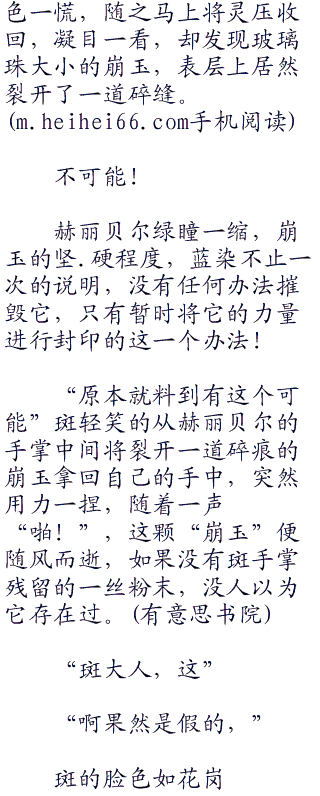 色一慌，随之马上将灵压收
回，凝目一看，却发现玻璃
珠大小的崩玉，表层上居然
裂开了一道碎缝。
(m.heihei66.com手机阅读)
不可能！
赫丽贝尔绿瞳一缩，崩
玉的坚.硬程度，蓝染不止一
次的说明，没有任何办法摧
毁它，只有暂时将它的力量
进行封印的这一个办法！
“原本就料到有这个可
能”斑轻笑的从赫丽贝尔的
手掌中间将裂开一道碎痕的
崩玉拿回自己的手中，突然
用力一捏，随着一声
“啪！”，这颗“崩玉”便
随风而逝，如果没有斑手掌
残留的一丝粉末，没人以为
它存在过。(有意思书院)
“斑大人，这”
“啊果然是假的，”
斑的脸色如花岗